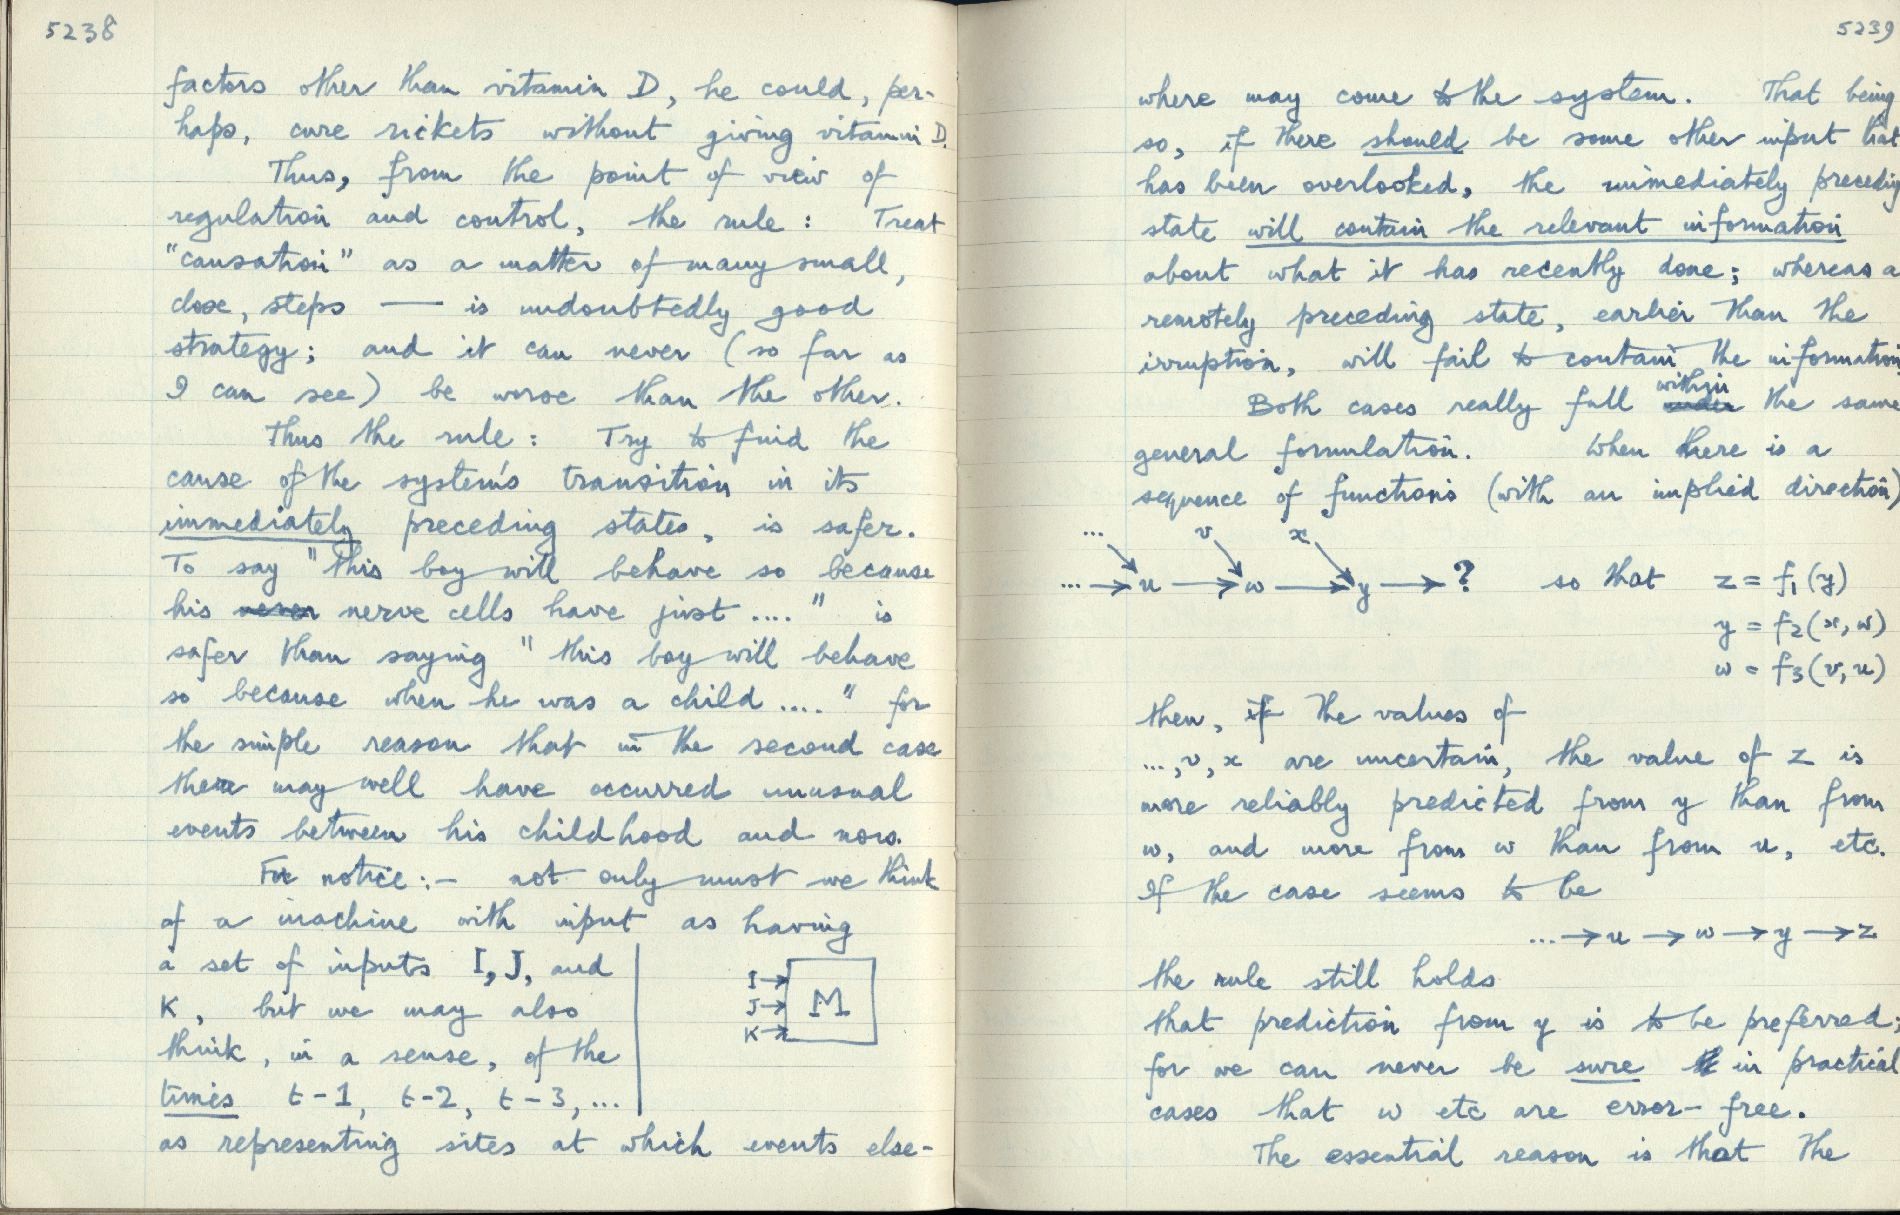 5238
factors other than vitamin D, he could, per-
haps, cure rickets without giving vitamin D.
Thus, from the point of view of
regulation and control, the rule : Treat
"causation" as a matter of many small,
close, steps — is undoubtedly good
strategy; and it can never (so far as
I can see) be worse than the other.
Thus the rule : Try to find the
cause of the system's transition in its
immediately preceding states, is safer.
To say "this boy will behave so because
his nerve cells have just ...." is
safer than saying "this boy will behave
so because when he was a child ...." for
the simple reason that in the second case
there may well have occurred unusual
events between his childhood and now.
For notice :- not only must we think
of a machine with input as having
a set of inputs I, J, and
K, but we may also
think, in a sense, of the
times t-1, t-2, t-3, ...
I
J
K
M
as representing sites at which events else-
5239
where may come to the system. That being
so, if there should be some other input that
has been overlooked, the immediately preceding
state will contain the relevant information
about what it has recently done; whereas a
remotely preceding state, earlier than the
irruption, will fail to contain the information
Both cases really fall within the same
general formulation. When there is a
sequence of functions (with an implied direction)
... v x
... → u → w → y → ? so that z = f₁(y)
y = f₂(x, w)
w = f₃(v, u)
then, if the values of
..., v, x are uncertain, the value of z is
more reliably predicted from y than from
w, and more from w than from u, etc.
If the case seems to be
... → u → w → y → z
the rule still holds
that prediction from y is to be preferred;
for we can never be sure in practical
cases that w etc are error-free.
The essential reason is that the